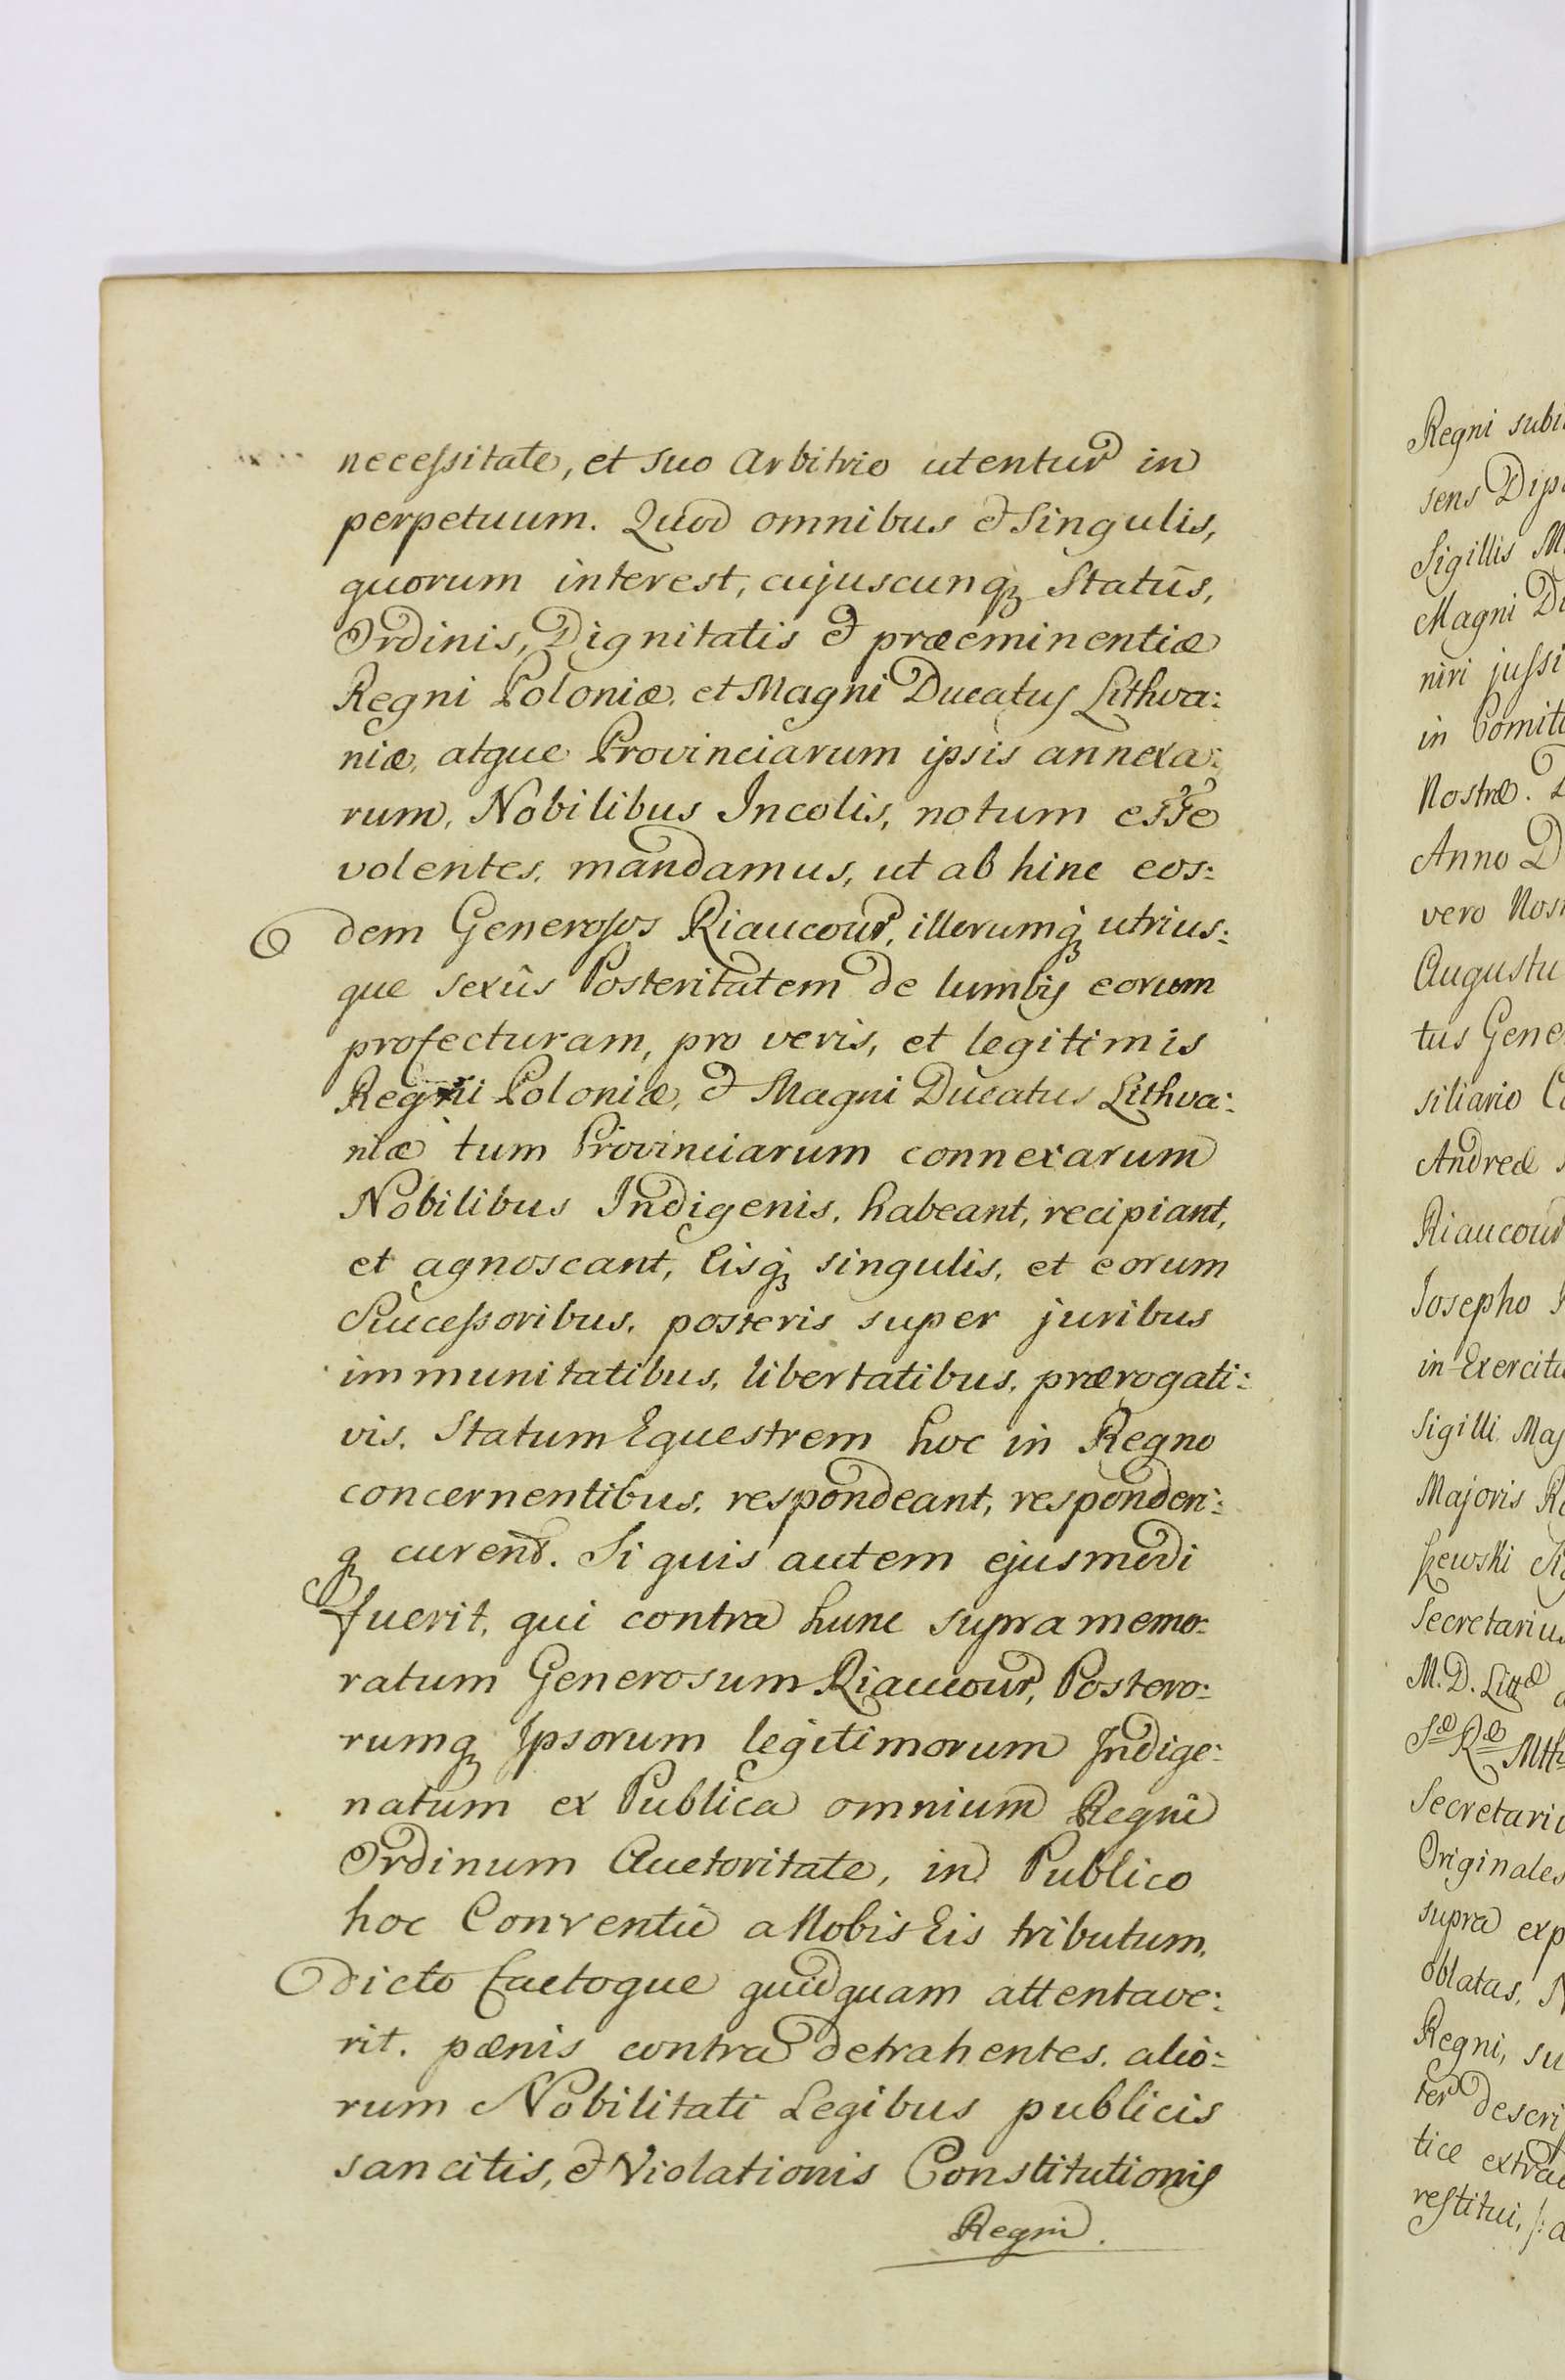 necessitate, et suo Arbitrio utentur in
perpetuum. Quod omnibus & Singulis,
quorum interest, cujuscunq; Statûs,
Ordinis, Dignitatis & præeminentiæ
Regni Poloniæ, et Magni Ducatus Lithva:
niæ, atque Provinciarum ipsis annexa:
rum, Nobilibus Incolis, notum esse
volentes, mandamus, ut ab hinc eos:
dem Generosos Riaucour, illorumq; utrius:
que sexûs Posteritatem de lumbis eorum
profecturam, pro veris, et legitimis
Regni Poloniæ, & Magni Ducatus Lithva:
niæ tum Provinciarum connexarum
Nobilibus Indigenis, habeant, recipiant,
et agnoscant, Eisq; singulis, et eorum
Successoribus, posteris super juribus
immunitatibus, libertatibus, prærogati:
vis, Statum Equestrem hoc in Regno
concernentibus, respondeant, responderi:
q; curent. Si quis autem ejusmodi
fuerit, qui contra hunc supra memo:
ratum Generosum Riaucour, Postero:
rumq; Ipsorum legitimorum Indige:
natum ex Publica omnium Regni
Ordinum Auctoritate, in Publico
hoc Conventu a Nobis Eis tributum,
dicto factoque quidquam attentave:
rit. pænis contra detrahentes, alio:
rum Nobilitati Legibus publicis
sancitis, & Violationis Constitutionis
Regni.
Regni subi
sens Dip
Sigillis M
Magni Du
niri jussi
in Comiti
Nostræ.
Anno D
vero Nos
Augustu
tus Gene
siliario Co
Andreæ
Riaucour
Josepho
in Exercitu
Sigilli Maj
Majoris R
szewski
Secretarius
M. D. Littæ
Sæ Ræ Mtt
Secretari
Originales
supra exp
oblatas, N
Regni, su
ter descri
tice extra
restitui,